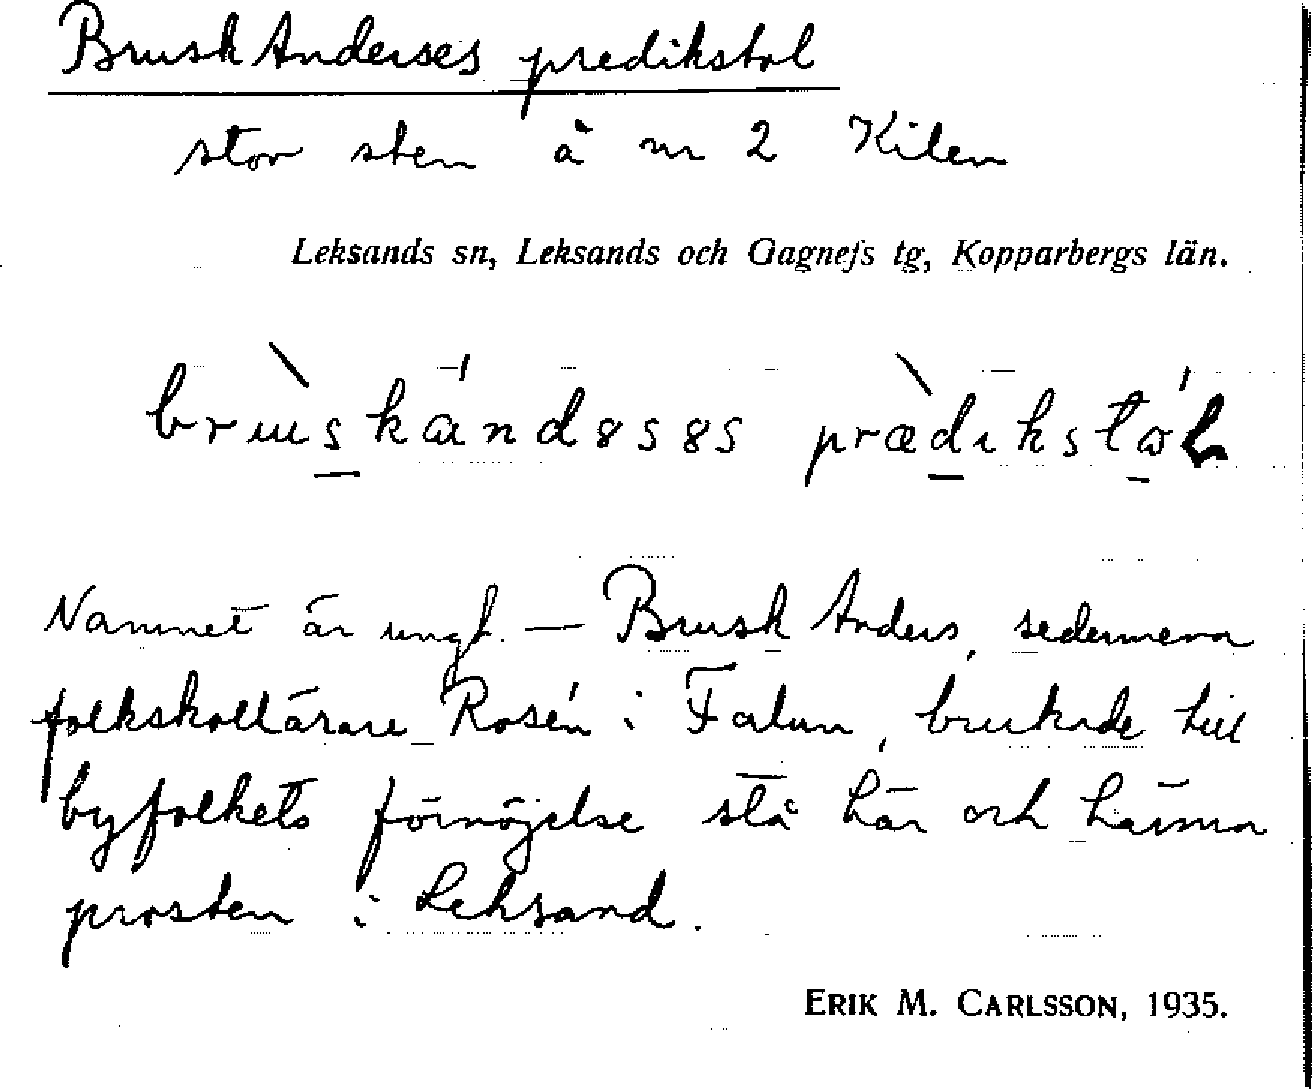 Brusk Anderses predikstol
stor sten å nr 2 Kilen
Leksands sn, Leksands och Gagnefs tg, Kopparbergs län.
Namnet är ungt. — Brusk Anders, sedermera
folkskollärare Rosén i Falun, brukade till
byfolkets förnöjelse stå här och härma
prosten i Leksand.
ERIK M. CARLSSON, 1935.